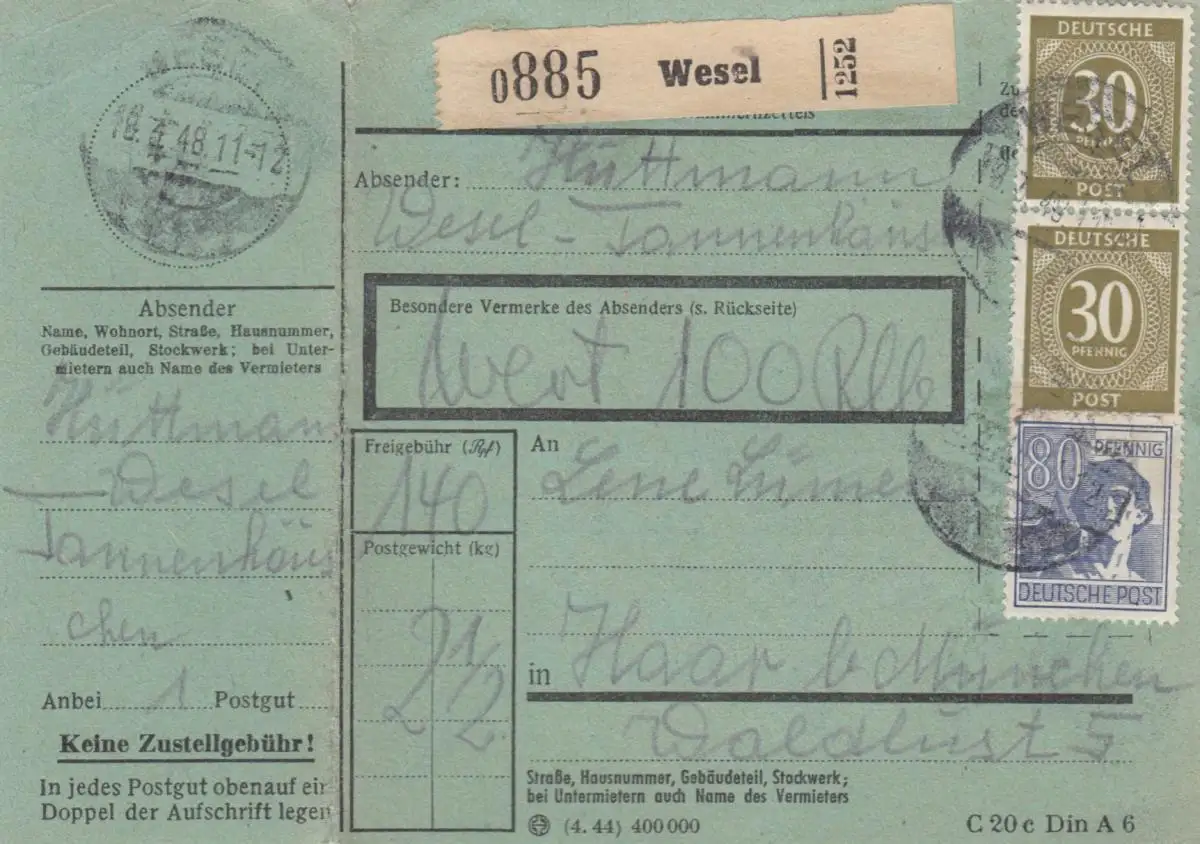 0885 Wesel 1252
DEUTSCHE
30
PFENNIG
POST
DEUTSCHE
30
PFENNIG
POST
80 PFENNIG
DEUTSCHE POST
48.11-12
Absender
Name, Wohnort, Straße, Hausnummer,
Gebäudeteil, Stockwerk; bei Unter-
mietern auch Name des Vermieters
Hüttmann
Wesel
Tannenhäus
chen
Anbei 1 Postgut
Keine Zustellgebühr!
In jedes Postgut obenauf ein
Doppel der Aufschrift legen
Zu
Absender: Hüttmann
Wesel - Tannenhäus
Besondere Vermerke des Absenders (s. Rückseite)
Wert 100 RM
Freigebühr (Rpf)
140
Postgewicht (kg)
2 1/2
An Lene
in Haar b München
Waldlust 5
Straße, Hausnummer, Gebäudeteil, Stockwerk;
bei Untermietern auch Name des Vermieters
(4. 44) 400 000
C 20 c Din A 6